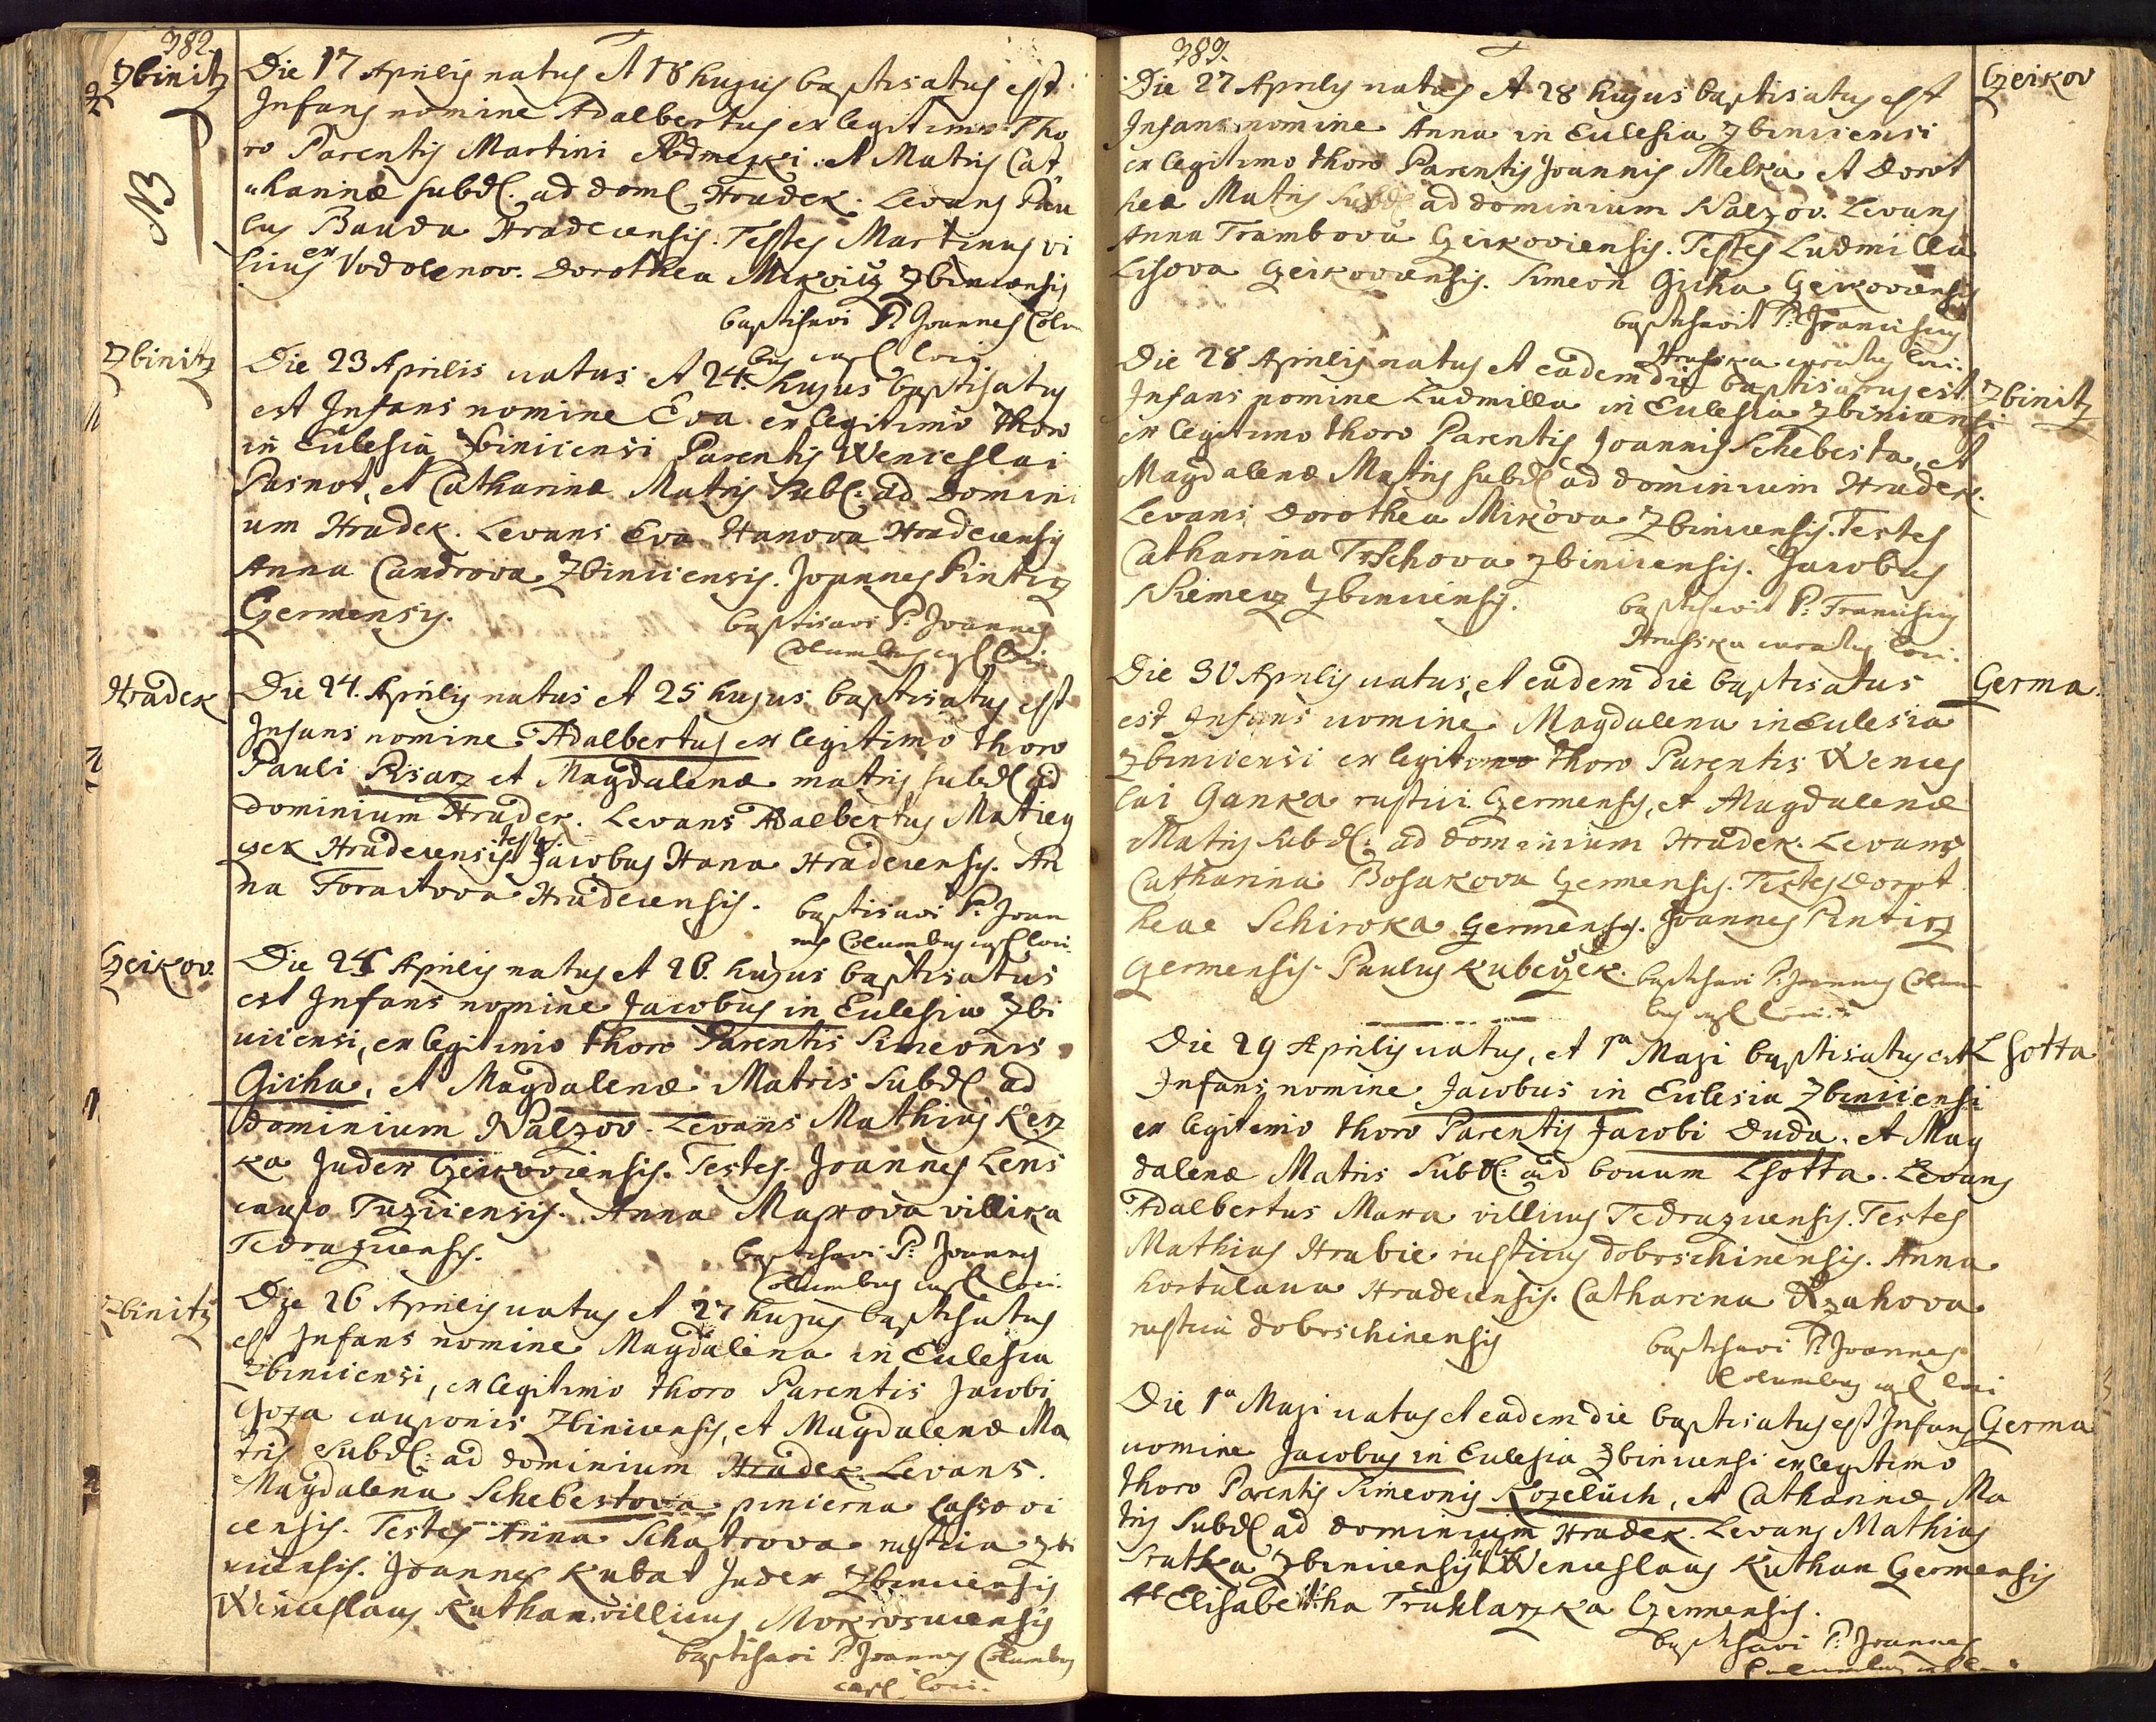 382.
Zbinitz
Die 17 Aprilis natus et 18 hujus baptisatus est
Infans nomine Adalbertus ex legitimo Tho
NB
ro Parentis Martini et Matris Cat
harinæ subd. ad dom. Hradek. Levans Pau
lus Bauda Hradecensis. Testes Martinus vi
licus ex Vodolenov. Dorothea Zbinicensis
baptisavi P. Joannes Colum
bus capl loci
Zbinitz
Die 23 Aprilis natus et 24. hujus baptisatus
est Infans nomine Eva ex legitimo thoro
in Eclesia Zbinicensi Parentis Wenceslai
Pasnot, et Catharinæ Matris Subd: ad Domini
um Hradek. Levans Eva Hanova Hradecensis
Anna Candrova Zbinicensis. Joannes Pintirz
Czermensis.
baptisavi P: Joannes
Columbus capl loci
Hradek
Die 24. Aprilis natus et 25 hujus baptisatus est
Infans nomine Adalbertus ex legitimo thoro
Pauli Pisarz et Magdalenæ matris subd ad
dominium Hradek. Levans Adalbertus Matieg
czek Hradecensis testes Jacobus Hana Hradecensis. An
na Hradecensis.
baptisavi P. Joan
nes Columbus capl loci
Czeikov.
Die 25 Aprilis natus et 26. hujus baptisatus
est Infans nomine Jacobus in Eclesia Zbi
nicensi, ex legitimo thoro Parentis Simeonis
Gicha, et Magdalenæ Matris Subd ad
dominium Nalzov. Levans Mathias Kerz
ka Judex Czeikoviensis. Testes Joannes Lens
caupo Tuzicensis. Anna Maxova villica
Tedrazicensis.
baptisavi P: Joannes
Columbus capl loci.
Zbinitz
Die 26 Aprilis natus et 27 hujus baptisatus
est Infans nomine Magdalena in Eclesia
Zbinicensi, ex legitimo thoro Parentis Jacobi
cauponis Zbinicensis, et Magdalenæ Ma
tris Subd: ad dominium Hradek. Levans.
Magdalena Schebestova pincerna
censis. Testes Anna Schatrova rustica Zbi
nicensis. Joannes Kuba Judex Zbinicensis
Wenceslaus Kuthan villicus Mokrosucensis
baptisavi P. Joannes Columbus
capl loci.
383.
Czeikov
Die 27 Aprilis natus et 28 hujus baptisatus est
Infans nomine Anna in Eclesia Zbinicensi
ex legitimo thoro Parentis Joannis Melka et Dorot
heæ Matris Subd ad dominium Nalzov. Levans
Anna Trambova Czeikoviensis. Testes Ludmilla
Lisova Czeikoviensis. Simeon Gicha Czeikoviensis
baptisavit P: Franciscus
Hruska curatus loci.
Zbinitz
Die 28 Aprilis natus et eadem die baptisatus est
Infans nomine Ludmilla in Eclesia Zbinicensi
ex legitimo thoro Parentis Joannis Schebesta, et
Magdalenæ Matris subd ad dominium Hradek.
Levans Dorothea Mikova Zbinicensis. Testes
Catharina Zbinicensis. Jacobus
Niemecz Zbinicensis.
baptisavit P: Franciscus
Hruska curatus loci.
Czerma.
Die 30 Aprilis natus, et eadem die baptisatus
est Infans nomine Magdalena in Eclesia
Zbinicensi ex legitimo thoro Parentis Wences
lai Ganka rustici Czermensis, et Magdalenæ
Matris Subd: ad dominium Hradek. Levans
Catharina Bosakova Czermensis. Testes Dorot
heae Schiroka Czermensis. Joannes Pintirz
Czermensis. Paulus Kubczek.
baptisavi P. Joannes Colum
bus capl loci
Lhotta
Die 29 Aprilis natus, et 1a Maji baptisatus est
Infans nomine Jacobus in Eclesia Zbinicensi
ex legitimo thoro Parentis Jacobi Duda. et Mag
dalenæ Matris Subd: ad bonum Lhotta. Levans
Adalbertus Maxa villicus Tedrazicensis. Testes
Mathias Hrabie rusticus dobrschinensis. Anna
hortulana Hradecensis. Catharina Rzahova
rustica dobrschinensis
baptisavi P: Joannes
Columbus capl loci
Czerma
Die 1a Maji natus et eadem die baptisatus est Infans
nomine Jacobus in Eclesia Zbinicensi ex legitimo
thoro Parentis Simeonis Kozeluch, et Catharinæ Ma
tris Subd ad dominium Hradek. Levans Mathias
Zbinicensis testes Wenceslaus Kuthan Czermensis
Elisabetha Truhlarzka Czermensis.
baptisavi P: Joannes
Columbus capl